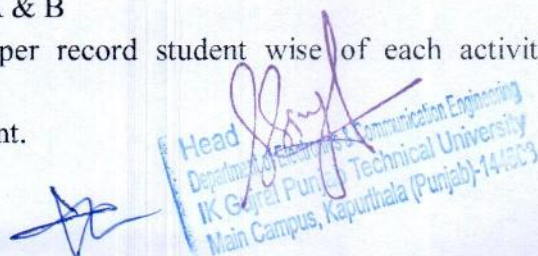 & B
per record student wise of each activit
nt.
Head
Department of Electronics & Communication Engineering
IK Gujral Punjab Technical University
Main Campus, Kapurthala (Punjab)-144603